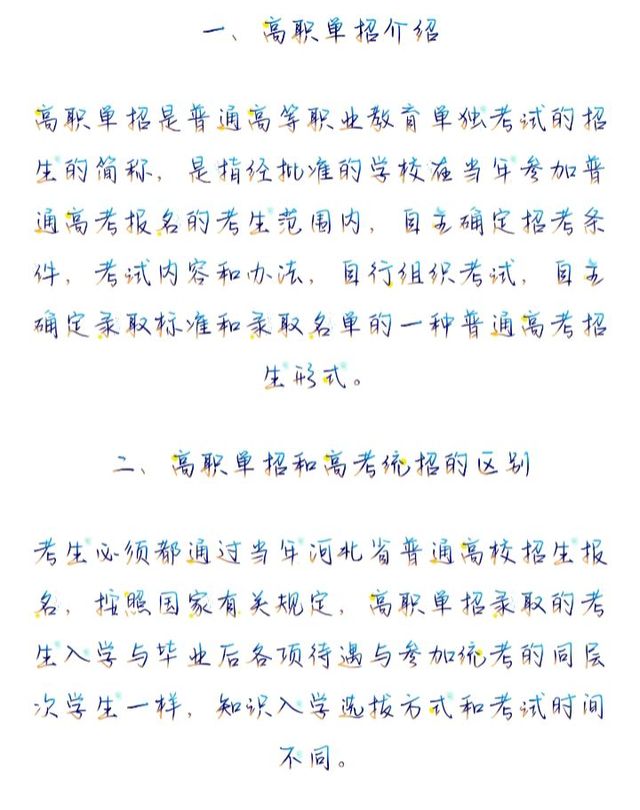 一、高职单招介绍
高职单招是普通高等职业教育单独考试的招
生的简称，是指经批准的学校在当年参加普
通高考报名的考生范围内，自主确定招考条
件，考试内容和办法，自行组织考试，自主
确定录取标准和录取名单的一种普通高考招
生形式。
二、高职单招和高考统招的区别
考生必须都通过当年河北省普通高校招生报
名，按照国家有关规定，高职单招录取的考
生入学与毕业后各项待遇与参加统考的同层
次学生一样，知识入学选拔方式和考试时间
不同。